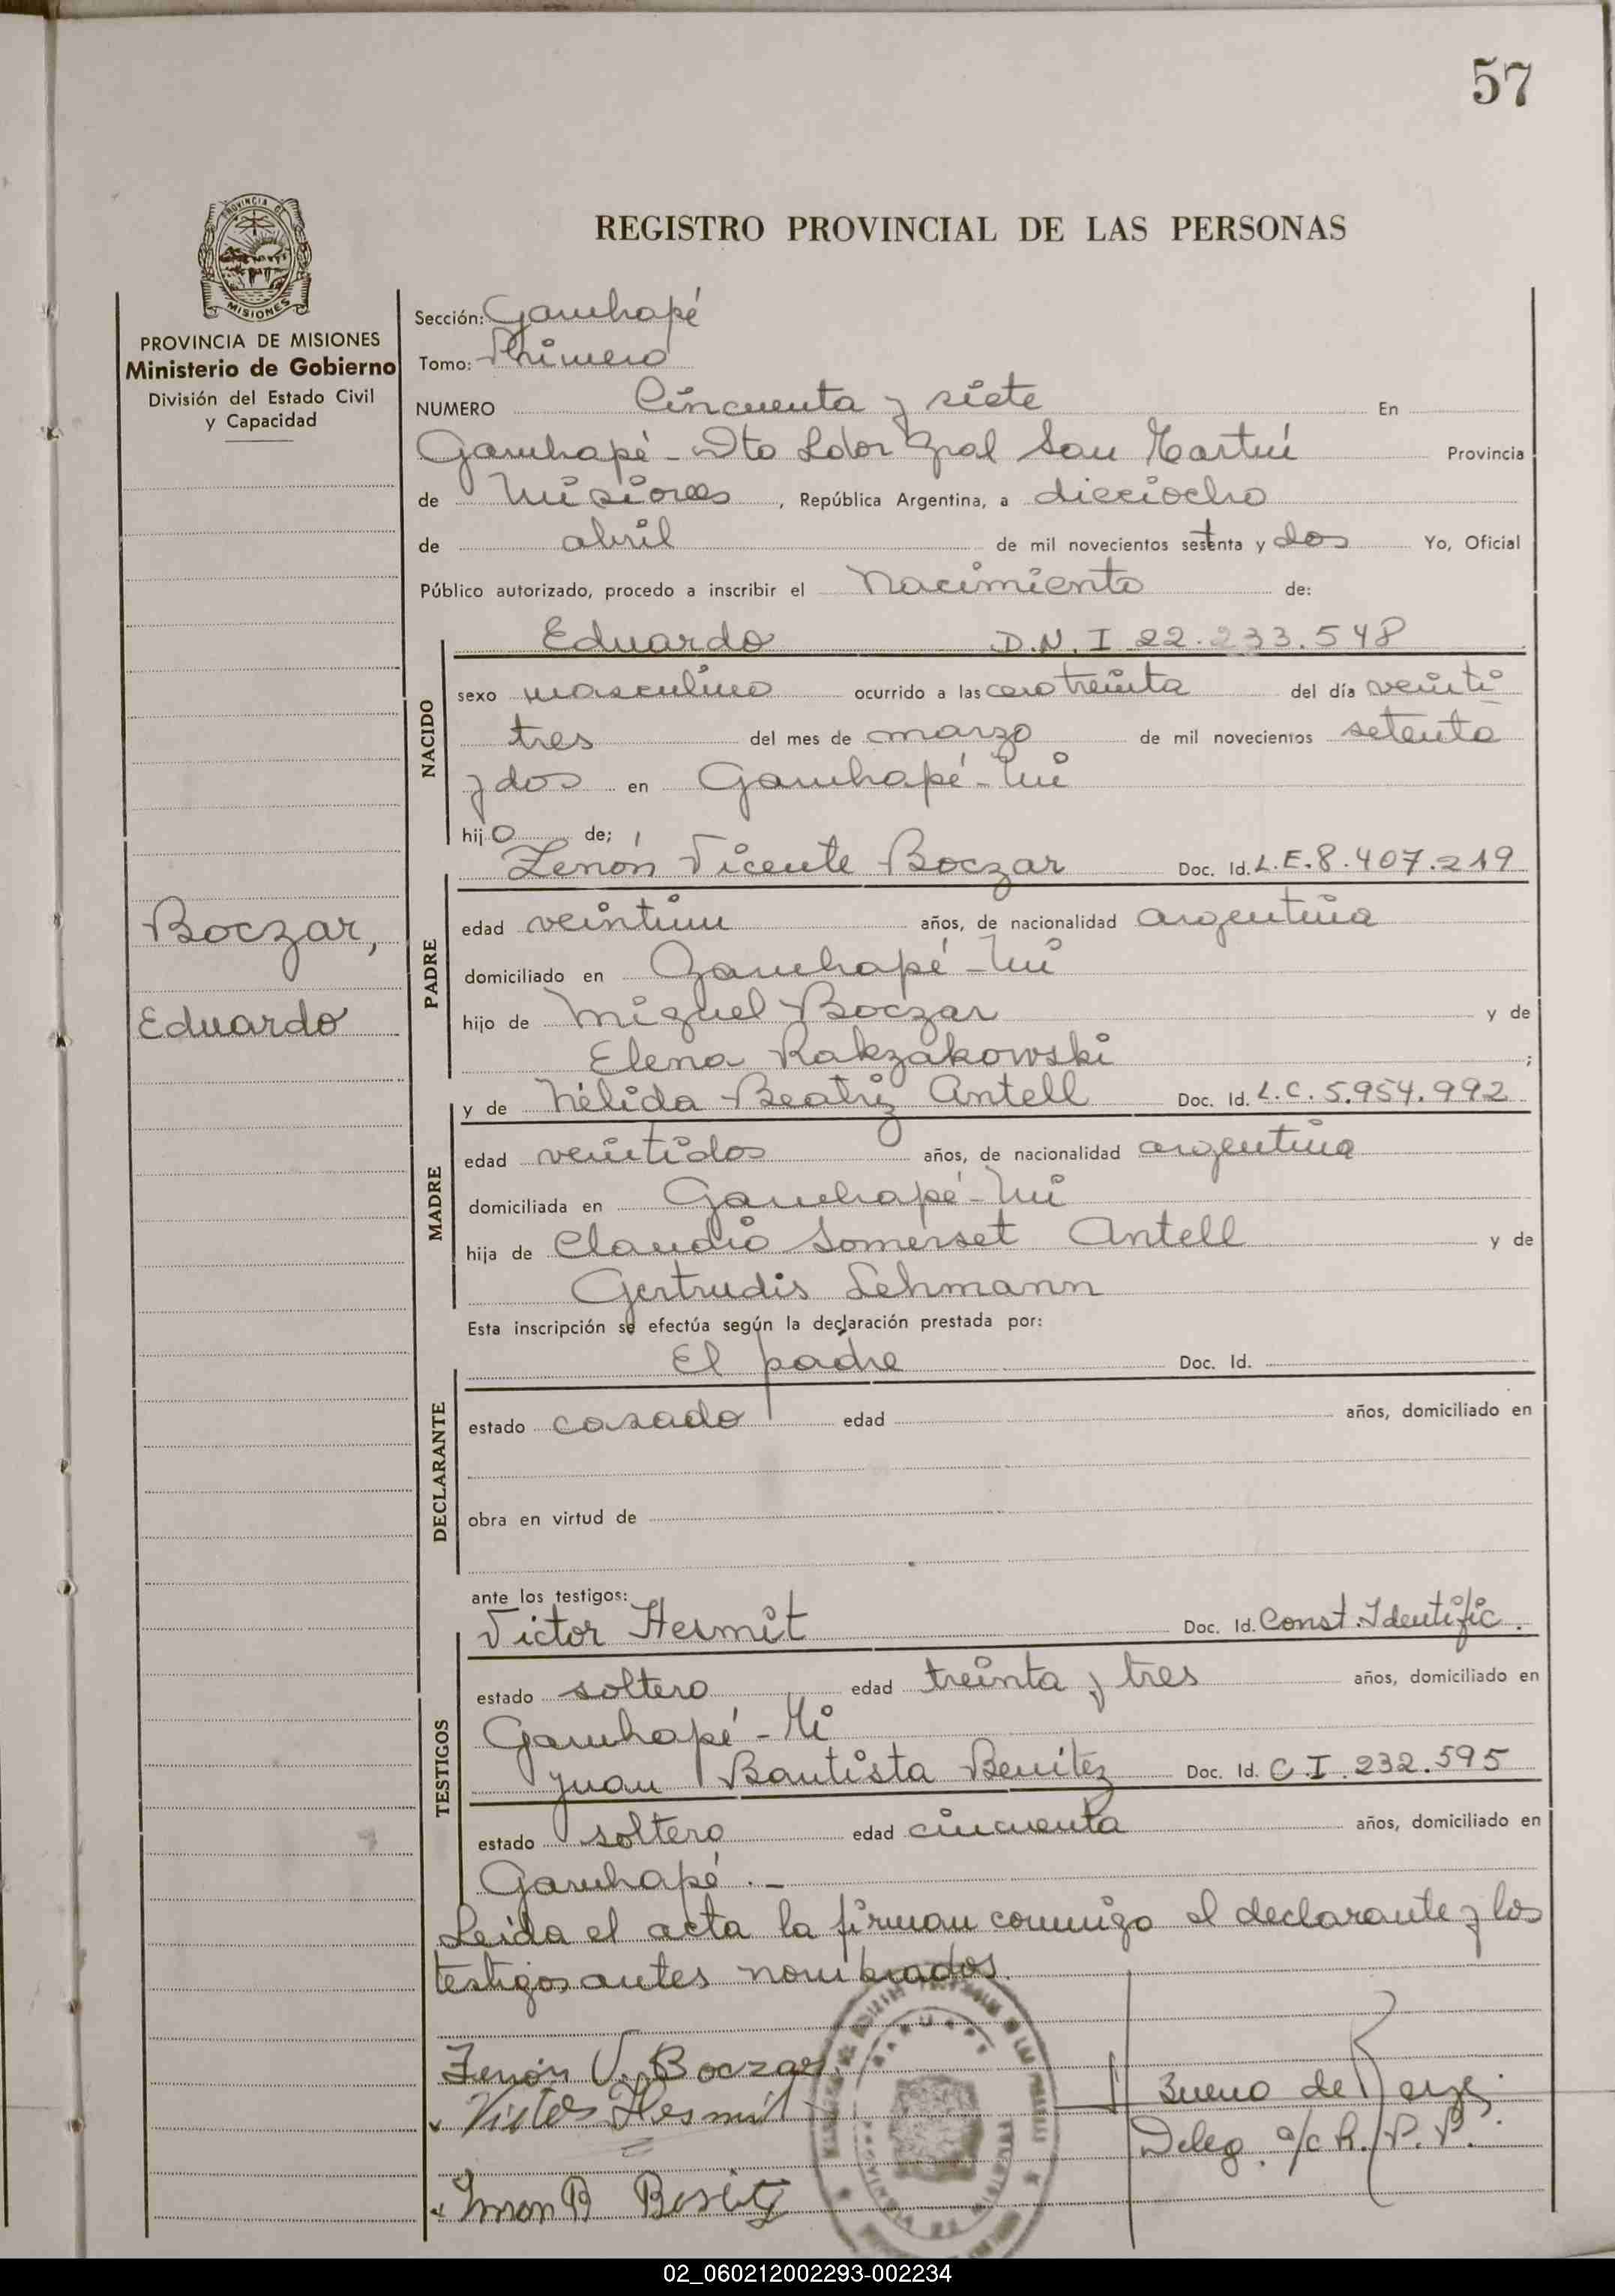 57
REGISTRO PROVINCIAL DE LAS PERSONAS
PROVINCIA DE MISIONES
Ministerio de Gobierno
División del Estado Civil
y Capacidad
Sección: Garuhapé
Tomo: Primero
NUMERO Cincuenta y siete En
Garuhapé - Dto Ldor Gral San Martín Provincia
de Misiones, República Argentina, a dieciocho
de abril de mil novecientos setenta y dos Yo, Oficial
Público autorizado, procedo a inscribir el Nacimiento de:
Eduardo D.N.I 22.233.548
NACIDO
sexo masculino ocurrido a las cero treinta del día veinti
tres del mes de marzo de mil novecientos setenta
y dos en Garuhapé-Mi
hijo de;
Zenón Vicente Boczar Doc. Id. L.E. 8.407.219
Boczar,
Eduardo
PADRE
edad veintiun años, de nacionalidad argentina
domiciliado en Garuhapé-Mi
hijo de Miguel Boczar y de
Elena Rakzakowski;
y de Nélida Beatriz Antell Doc. Id. L.C. 5.954.992
MADRE
edad veintidos años, de nacionalidad argentina
domiciliada en Garuhapé-Mi
hija de Claudio Somerset Antell y de
Gertrudis Lehmann
Esta inscripción se efectúa según la declaración prestada por:
El padre Doc. Id.
DECLARANTE
estado casado edad años, domiciliado en
obra en virtud de
ante los testigos:
Victor Hermit Doc. Id. Const. Identific.
TESTIGOS
estado soltero edad treinta y tres años, domiciliado en
Garuhapé-Mi
Juan Bautista Benítez Doc. Id. C.I. 232.595
estado soltero edad cincuenta años, domiciliado en
Garuhapé.-
Leída el acta la firman conmigo el declarante y los
testigos antes nombrados.
Zenón V. Boczar
Victor Hermit
Bueno de
Deleg. a/c R.P.P.
02_060212002293-002234